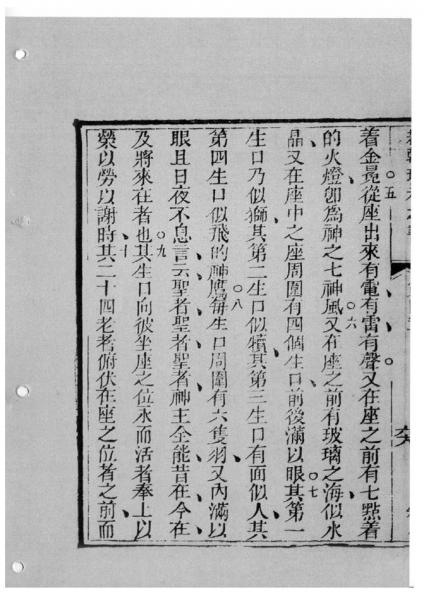 〇五
着金冕從座出來有電有雷有聲又在座之前有七㸃着
〇六
的火燈卽為神之七神風又在座之前有玻璃之海似水
〇七
晶又在座中之座周圍有四個生口前後滿以眼其第一
生口乃似獅其第二生口似犢其第三生口有面似人其
〇八
第四生口似飛的神鷹每生口周圍有六隻羽又內滿以
眼且日夜不息言云聖者聖者聖者神王全能昔在今在
〇九
及將來在者也其生口向彼坐座之位永而活者奉上以
十
榮以勞以謝時其二十四老者俯伏在座之位者之前而